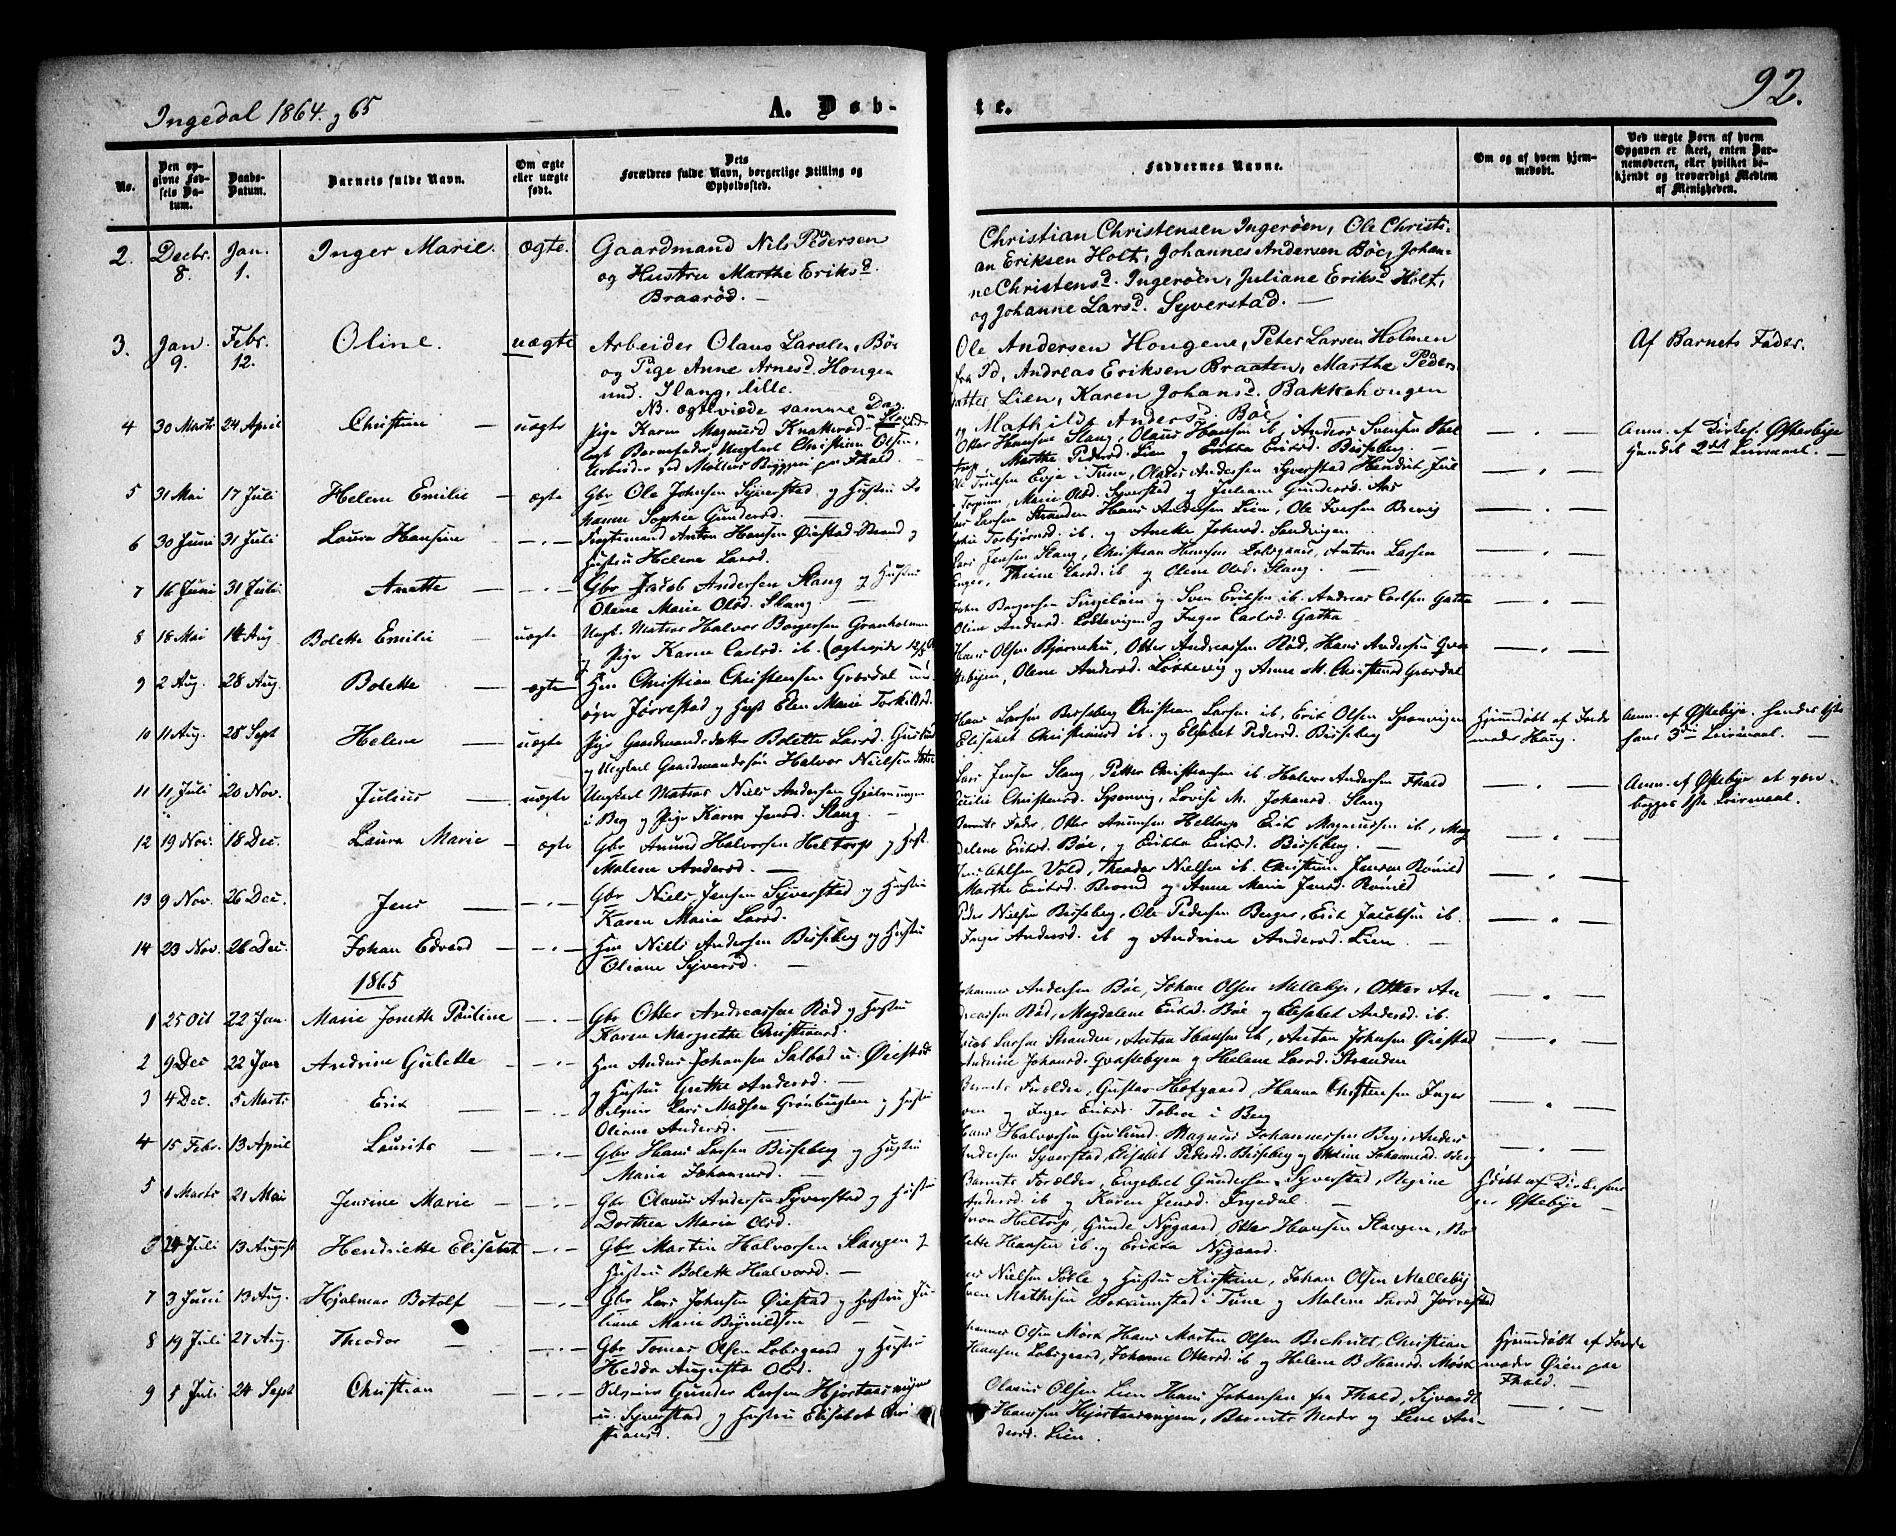 Ingedal 1864 og 65
A. Døbte.
92.
No.
Den opgivne Fødsels Datum.
Daabs-Datum.
Barnets fulde Navn.
Om ægte eller uægte født.
Dets Forældres fulde Navn, borgerlige Stilling og Opholdssted.
Faddernes Navne.
Om og af hvem hjemmedøbt.
Ved uægte Børn af hvem Opgaven er skeet, enten Barnemoderen, eller hvilket bekjendt og troværdigt Medlem af Menigheden.
2. Decbr. 8. Jan. 1. Inger Marie. ægte. Gaardmand Nils Pedersen
og Hustru Marthe Eriksd.
Braarød. —
Christian Christensen Ingerøen, Ole Christi-
an Eriksen Holt, Johannes Andersen Böe, Johan-
ne Christensd. Ingerøen, Juliane Eriksd Holt,
og Johanne Larsd. Syverstad. —
3. Jan. 9. Febr. 12. Oline. uægte Arbeider Olaus Larsen, Böe
og Pige Anne Arnesd. Hongen
und. Slang, lille.
NB. ægteviede samme Dag
Ole Andersen Hongene, Peter Larsen Holmen
fra Id, Andreas Eriksen Braaten, Marthe Peders
datter Lien, Karen Johansd. Bakkehongen
og Mathilde Andersd. Böe
Af Barnets Fader.
4 30 Marts 24 April Christine — uægte Pige Karen Magnusd Knatterød
Barnefader, Ungkarl Christian Olsen,
Arbeider ved Møllers Brygge paa Fhald. —
Otter Hansen Slang, Olaus Hansen ib, Anders Svensen Hel
torp, Marthe Pedersd. Lien og Erikka Eriksd. Bisseberg. —
Anm. af Kirkes. Østebye
hendes 2det Leiermaal. —
5 31 Mai 17 Juli Helene Emilie — ægte Gbr Ole Johnsen Syverstad og Hustru
Sophia Gundersd. —
Truelsen Evje i Tune, Olaus Andersen Syverstad
Torpum, Marie Olsd. Syverstad og Juliane Gundersd. Aas
6 30 Juni 31 Juli Laura Hansine — . — Anton Hansen Øiestad Strand og
Hustru Helene Larsd.
Larsen Stranden Hans Andersen Lien, Ole Iversen Brevig
Torbjørnsd. ib. og Aneke Johnsd. Sandvigen.
7 16 Juni 31 Juli Anette — — . — Gbr Jacob Andersen Slang og Hustru
Oline Marie Olsd. Slang. —
Lars Jensen Slang, Christian Hansen Lobsgaard, Anton Larsen
Thrine Larsd. ib og Olene Olsd. Slang. —
8 18 Mai 14 Aug. Bolette Emilie — uægte Ungk. Matros Halvor Børgersen Granholmen
og Pige Karen Carlsd. ib.
John Børgersen Singeløen og Sven Eriksen ib. Andreas Carlsen Gatha
Oline Andersd. Lökkevigen og Inger Carlsd. Gatha
9 2 Aug. 28 Aug. Bolette — ægte Hm Christian Christensen Græsdal
Jørrestad og Hust Elen Maria Torkildsd.
Hans Olsen Bjørneku, Otter Andreassen Rød, Hans Andersen
Olene Andersd. Løkkevig og Anne M. Christensd Græsdal
10 11 Aug. 28 Sept Helene — uægte Pige Gaardmandsdatter Bolette Larsd.
og Ungkarl Gaardmandssøn Halvor Nielsen
Hans Larsen Bisseberg Christian Larsen ib, Erik Olsen Sponvigen
Elisabet Christiansd ib. og Elisabet Pedersd. Bisseberg
Hjemdøbt af Jorde-
moder Haug.
Anm. af Østebye. hendes 1ste
hans 3die Leiermaal. —
11 11 Juli 20 Nov. Julius — uægte Ungkarl Matros Niels Andersen
i Berg og Pige Karen Jensd. Slang. —
Lars Jensen Slang, Petter Christiansen ib. Halvor Andersen Fhald
Cecilie Christensd. Sponvig, Lovise M. Johansd. Slang
Anm. af Østebye at være
begges 1ste Leiermaal.
12 19 Nov. 18 Dec. Laura Marie — ægte Gbr Amund Halvorsen Heltorp og Hust.
Malene Andersd. —
Barnets Fader, Otter Amundsen Heltorp Erik Magnussen ib, Mag
delene Eriksd. Böe, og Erikka Eriksd. Bisseberg. —
13 9 Nov. 26 Dec. Jens — — . — Gbr Niels Jensen Syverstad og Hustru
Karen Maria Larsd.
Vold, Theodor Nielsen ib. Christian Jensen
Marthe Eriksd. Brond og Anne Maria Jensd.
14 23 Nov. 26 Dec. Johan Edvard — — . — Hm Niels Andersen Bisseberg og Hustru
Oliane Syversd. —
Peder Nielsen Bisseberg, Ole Pedersen Berger, Erik Jacobsen ib.
Inger Andersd. ib og Andrine Andersd. Lien —
1865
1 25 Oct 22 Jan. Marie Jonette Pauline — . — Gbr Otter Andreassen Rød og Hustru
Karen Margrethe Christiansd.
Johannes Andersen Böe, Johan Olsen Melleby, Otter An
dreassen Rød, Magdalene Eriksd. Böe og Elisabet Andersd. ib.
2 9 Dec 22 Jan Andrine Gulette — . — Hm Anders Johansen Salbod u. Øiestad
og Hustru Grethe Andersd. —
Jacob Larsen Stranden, Anton Hansen ib, Anton Johnsen Øiestad
Andrine Johansd. og Helene Larsd. Stranden
3 4 Dec. 5 Marts Erik — — . — Selveier Lars Madsen Grönbugten og Hustru
Oliane Andersd. —
Barnets Forældre, Gustav Hofgaard, Hanna Christensen Inger
øen og Inger Eriksd. i Berg
4 15 Febr. 13 April Laurits — — . — Gbr Hans Larsen Bisseberg og Hustru
Maria Johannesd. —
Hans Halvorsen Magnus Johannessen Berg, Anders
Andersen Syverstad, Elisabet Pedersd. Bisseberg og Johannesd. Berg
5 1 Marts 21 Mai Jensine Marie — . — Gbr Olaus Andersen Syverstad og Hustru
Dorthea Maria Olsd. —
Barnets Forældre, Engebret Gundersen Syverstad, Regine
Andersd. ib og Karen Jensd. Ingedal —
Hjdøbt af Kirkesan-
ger Østebye —
24 Juli 13 August Hendriette Elisabet — . — Gbr Martin Halvorsen Slangen og
Hustru Bolette Halvorsd. —
Heltorp, Gunde Nygaard, Otter Hansen Slangen, Bo
lette Hansen ib. og Erikka Nygaard.
7 3 Juni 13 Aug. Hjalmar Botolf — . — Gbr Lars Johnsen Øiestad og Hustru Ju-
liane Marie —
Nielsen og Hustru Kirstine, Johan Olsen Melleby
Mathisen i Tune og Malene Larsd Jørrestad
8 19 Juli 27 Aug. Theodor — — . — Gbr Tomas Olsen Lobsgaard og Hustru
Hedda Augusta Olsd.
Olsen Mörk Hans Martin Olsen Christian
Hansen Lobsgaard, Johanne Ottersd. ib og Helene B. Hansd. Mörk
Hjemmdøbt af Jorde
moder Øien paa
Fhald. —
9 5 Juli 24 Sept Christian — — . — Selveier Gunder Larsen Hjortaasvigen
u. Syverstad og Hustru Elisabet Chri
stiansd. —
Olaus Olsen Lien Hans Johansen fra Fhald, Syvardt
Hanssen Hjortaasvigen, Barnets Moder og Lene An-
dersd. Lien.